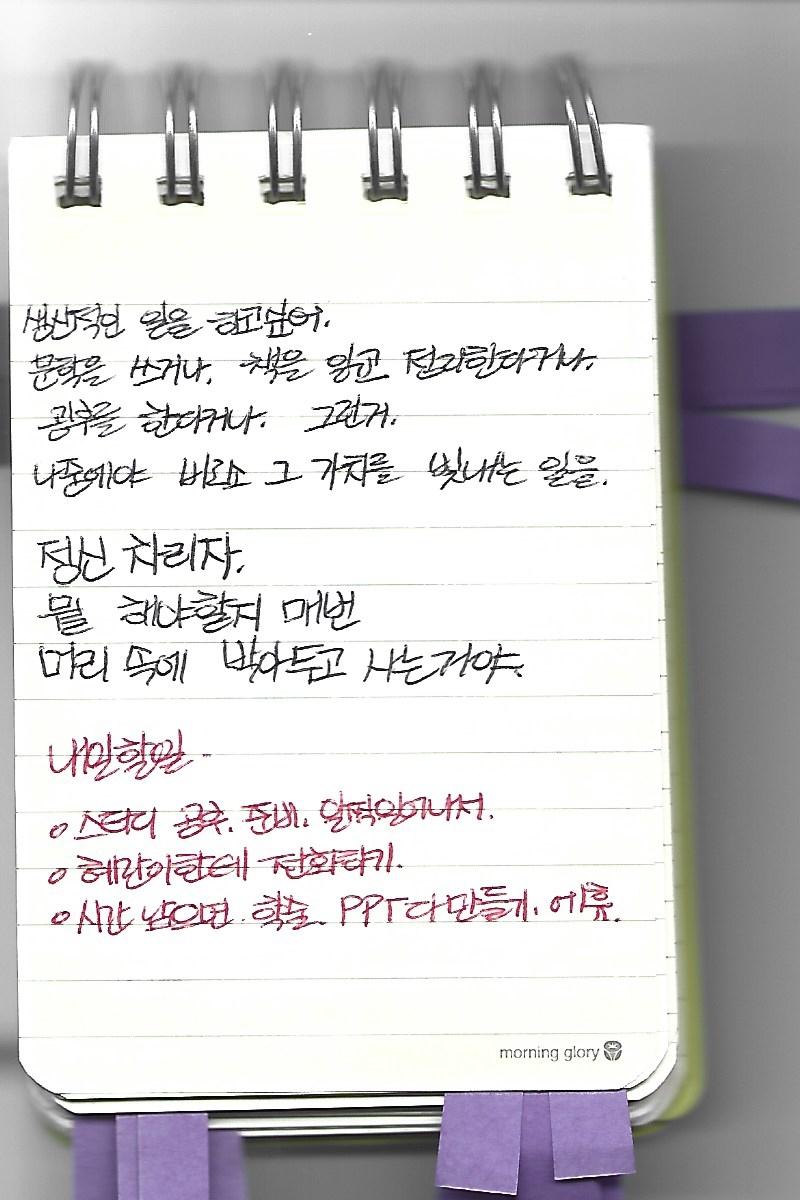 생산적인 일을 하고싶어.
문학을 쓰거나, 책을 읽고 정리한다거나.
공부를 한다거나. 그런거.
나중에야 비로소 그 가치를 빛내는 일을.
정신 차리자.
뭘 해야할지 매번
머리 속에 박아두고 사는거야.
내일할일 -
스터디 공부. 준비. 일찍일어나서.
혜란이한테 전화하기.
시간 남으면 학술 PPT 다 만들기. 에휴.
morning glory